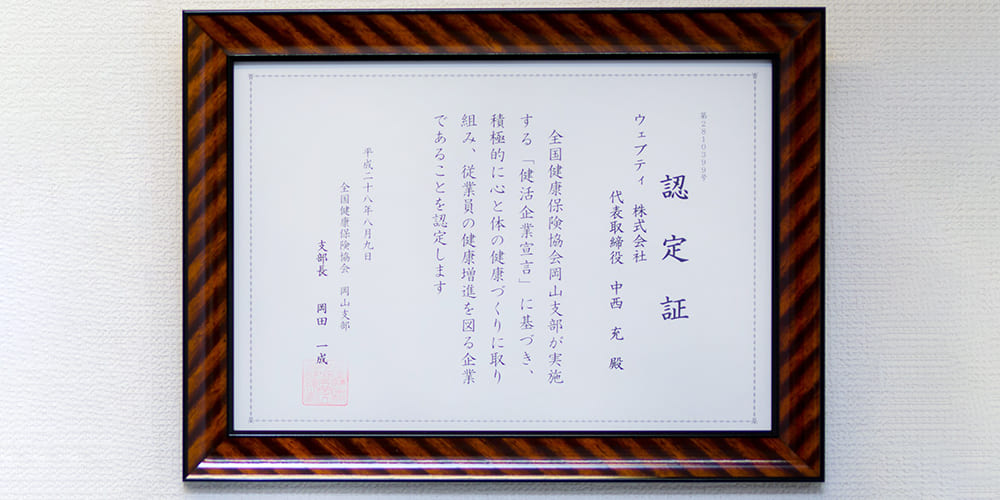 第2810399号
認定証
ウェブティ 株式会社
代表取締役 中西 充 殿
全国健康保険協会岡山支部が実施
する「健活企業宣言」に基づき、
積極的に心と体の健康づくりに取り
組み、従業員の健康増進を図る企業
であることを認定します
平成二十八年八月九日
全国健康保険協会 岡山支部
支部長 岡田 一成